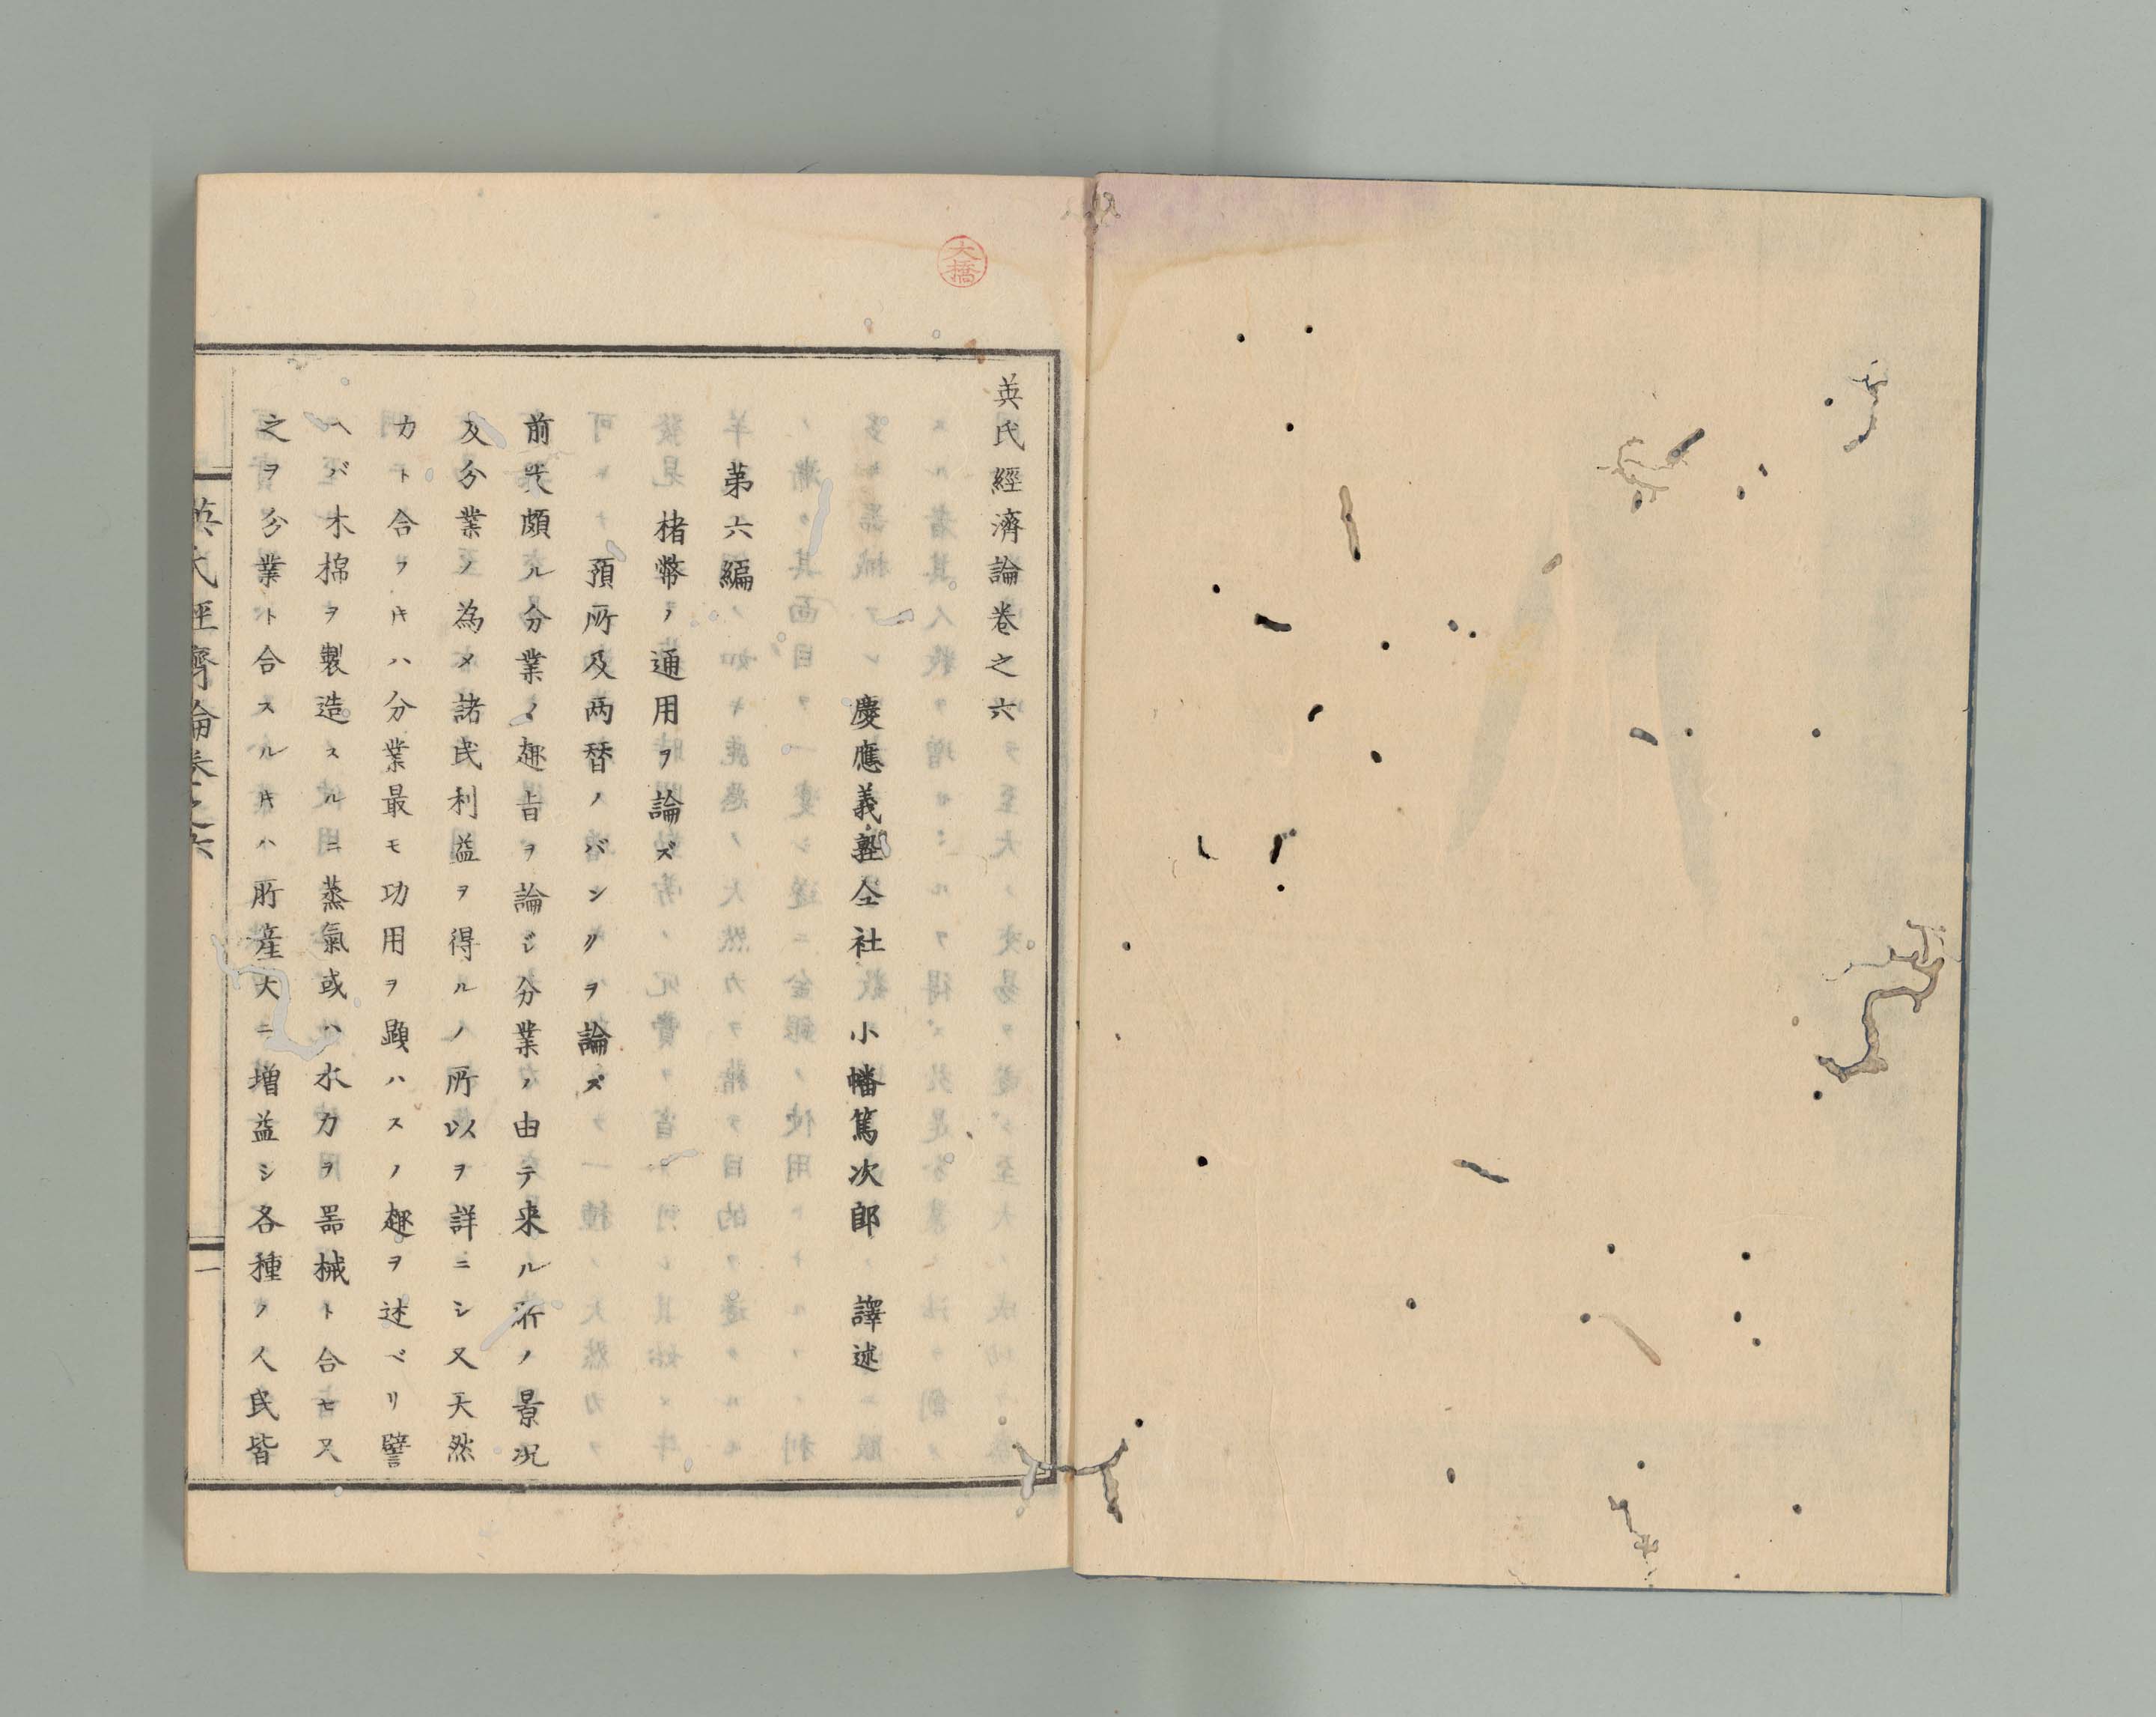 大橋
英氏經濟論卷之六
慶應義塾仝社 小幡篤次郎 譯述
第六編
楮幣ノ通用ヲ論ズ
預所及両替ノバンクヲ論ズ
前頗ル分業ノ趣旨ヲ論ジ分業ノ由テ来ル所ノ景況
及分業ノ為メ諸民利益ヲ得ルノ所以ヲ詳ニシ又天然
力ト合ヲトキハ分業最モ功用ヲ顕ハスノ趣ヲ述ベリ譬
ヘバ木棉ヲ製造スルニ蒸氣或ハ水力ヲ器械ト合セ又
之ヲ分業ト合スルトキハ所産大ニ増益シ各種ノ人民皆
英氏經濟論卷之六
一